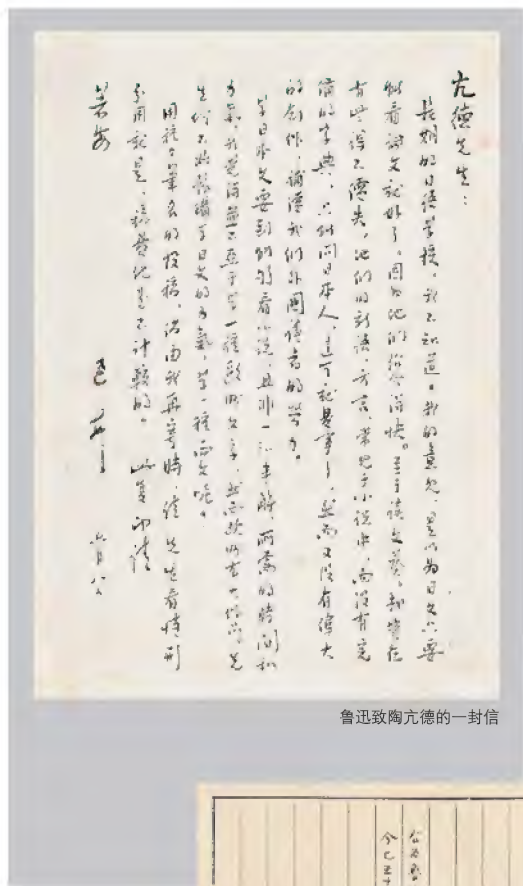 亢德先生：
長期的日語学校，我不知道。我的意見，是以为日文只要
能看論文就好了，因为他们紹介得快。至于讀文藝，却实在
有些得不償失，他们的新語，方言，常見于小说中，而没有完
備的字典，只能問日本人，这可就費事了，然而又没有偉大
的創作，補償我们外國讀者的勞力。
学日本文要到能夠看小说，且非一知半解，所需的時間和
力氣，我觉得並不亞于学一種歐洲文字，然而欧洲有大作品。先
生何不将豫備学日文的力氣，学一種西文呢？
用種種筆名的投稿，倘由我再寄時，請先生看情形
分用就是，稿費他是不計較的。 此复即請
著安
迅 上 六月八
鲁迅致陶亢德的一封信